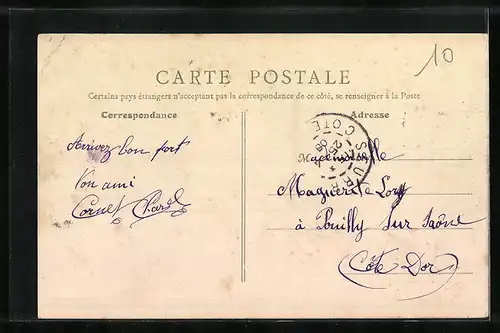 10
CARTE POSTALE
Certains pays étrangers n'acceptant pas la correspondance de ce côté, se renseigner à la Poste
Correspondance
Adresse
Arrivez bon port
Ton ami
M
Mademoiselle
Marguerite Lory
à Pouilly Sur Saône
(Côte Dor)
COTE
25
08